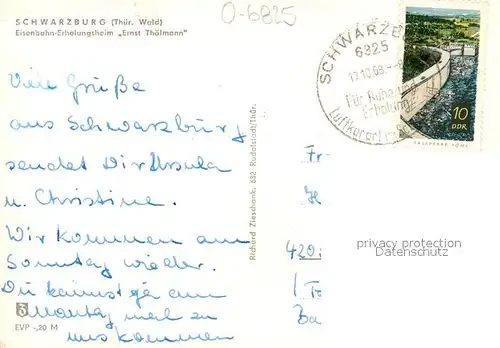 SCHWARZBURG (Thür. Wald)
Eisenbahn-Erholungsheim „Ernst Thälmann"
O-6825
Viele Grüße
aus Schwarzburg
sendet Dir Ursula
u. Christine.
Wir kommen am
Sonntag wieder.
Du kannst ja am
Montag mal zu
uns kommen
EVP -,20 M
Richard Zieschank, 682 Rudolstadt/Thür.
SCHWARZB
6825
17.10.69.-
Für Ruhe und
Erholung
Luftkurort
10
DDR
TALSPERRE PÖHL
Fr
H
420
privacy protection
Datenschutz
1 To
Ba